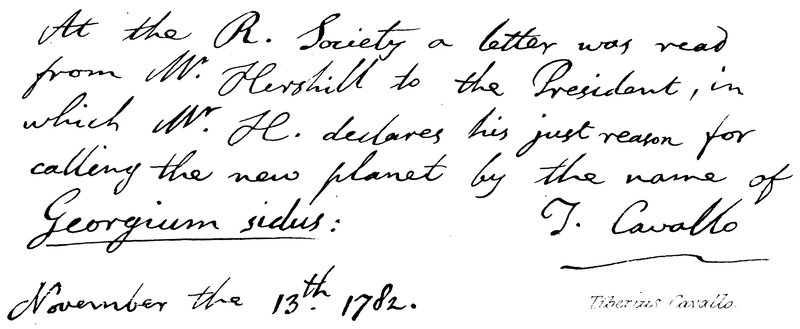 At the R. Society a letter was read
from Mr. Hershill to the President, in
which Mr. H. declares his just reason for
calling the new planet by the name of
Georgium sidus: T. Cavallo
November the 13th. 1782. Tiberius Cavallo.